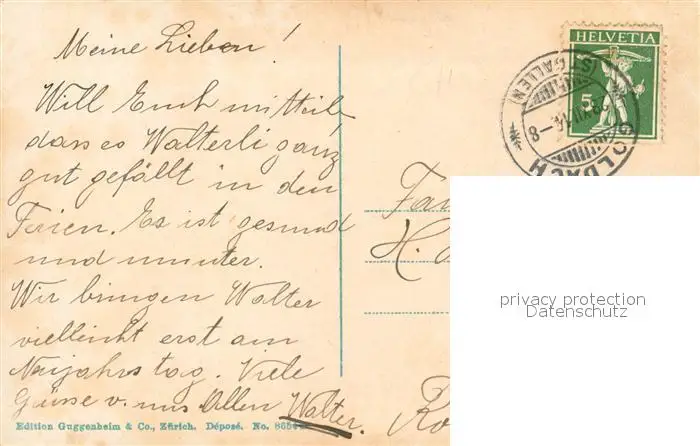 Meine Lieben!
Will Euch mitteilen
dass es Walterli ganz
gut gefällt in den
Ferien. Es ist gesund
und munter.
Wir bringen Walter
vielleicht erst am
Neujahrstag. Viele
Grüsse v. uns Allen Walter.
Edition Guggenheim & Co., Zürich. Déposé. No.
HELVETIA
5
(ST. GALLEN)
GOLDACH
Fam
H.
privacy protection
Datenschutz